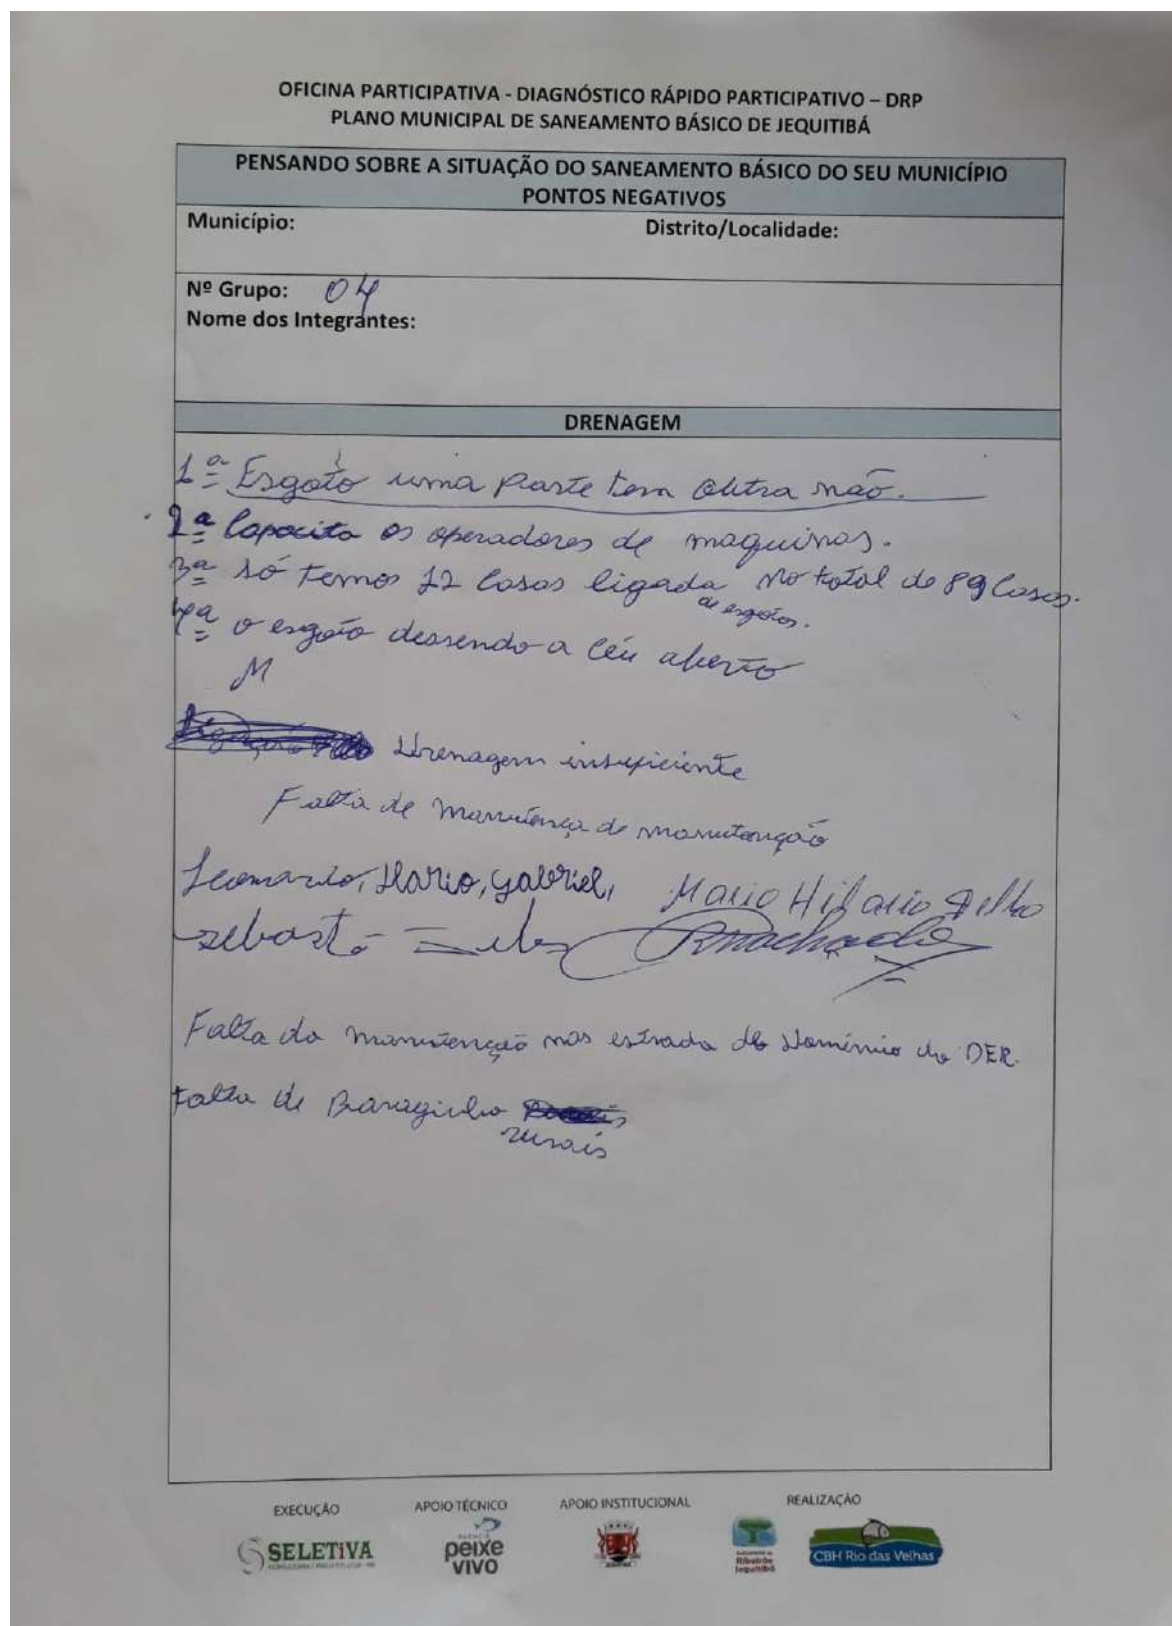 OFICINA PARTICIPATIVA - DIAGNÓSTICO RÁPIDO PARTICIPATIVO – DRP
PLANO MUNICIPAL DE SANEAMENTO BÁSICO DE JEQUITIBÁ
PENSANDO SOBRE A SITUAÇÃO DO SANEAMENTO BÁSICO DO SEU MUNICÍPIO
PONTOS NEGATIVOS
Município: Distrito/Localidade:
Nº Grupo: 04
Nome dos Integrantes:
DRENAGEM
1ª Esgoto uma parte tem outra não.
2ª Capacita os operadores de maquinas.
3ª só temos 12 casas ligada no total de 89 casas.
de esgotos.
4ª o esgoto dessendo a céu aberto
M
Drenagem insuficiente
Falta de manutença de manutenção
Leonardo, Ilario, Gabriel, Mario Hilario
sebastº Machado
Falta da manutenção nas estrada do Domínio do DER.
Falta de Baraginha
rurais
EXECUÇÃO APOIO TÉCNICO APOIO INSTITUCIONAL REALIZAÇÃO
SELETIVA
AGÊNCIA
peixe
vivo
JEQUITIBÁ
Ribeirão
Jequitibá
CBH Rio das Velhas